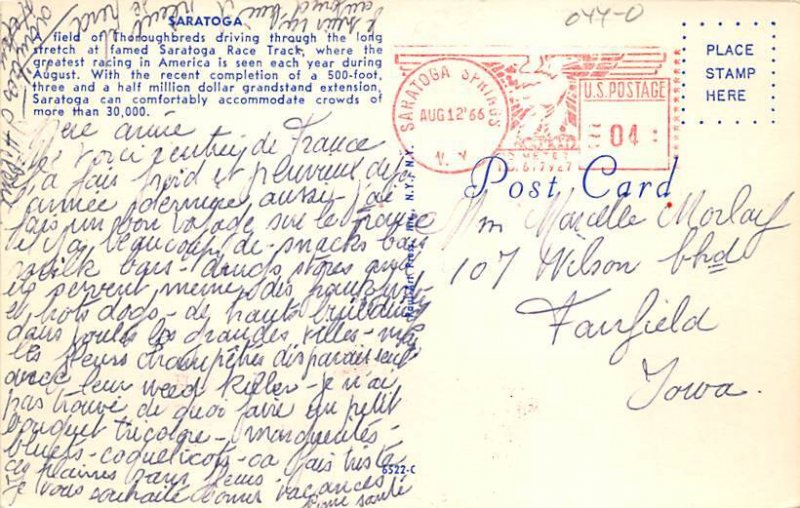 SARATOGA
A field of Thoroughbreds driving through the long
stretch at famed Saratoga Race Track, where the
greatest racing in America is seen each year during
August. With the recent completion of a 500-foot,
three and a half million dollar grandstand extension,
Saratoga can comfortably accommodate crowds of
more than 30,000.
044-0
PLACE
STAMP
HERE
SARATOGA SPRINGS
AUG 12 '66
N.Y.
U.S. POSTAGE
04
Post Card
Mm Marcelle Morlay
107 Wilson blvd
Fairfield
Iowa.
amie
voici rentrée de France
a fait froid et pluvieux
année dernière aussi - j'ai
fais un bon sur la France
il y a beaucoup de - snacks bars
milk bars - drugs stores
ils servent même des
et hots dogs - de hauts buildings
dans toutes les grandes villes -
les fleurs champêtres disparaissent
avec leur weed killer - je n'ai
pas trouvé de quoi faire un petit
bouquet tricolore - marguerites -
bluets - coquelicots - ca fais triste
ces plaines sans fleurs.
Je vous souhaite bonnes vacances
bonne santé
6522-C